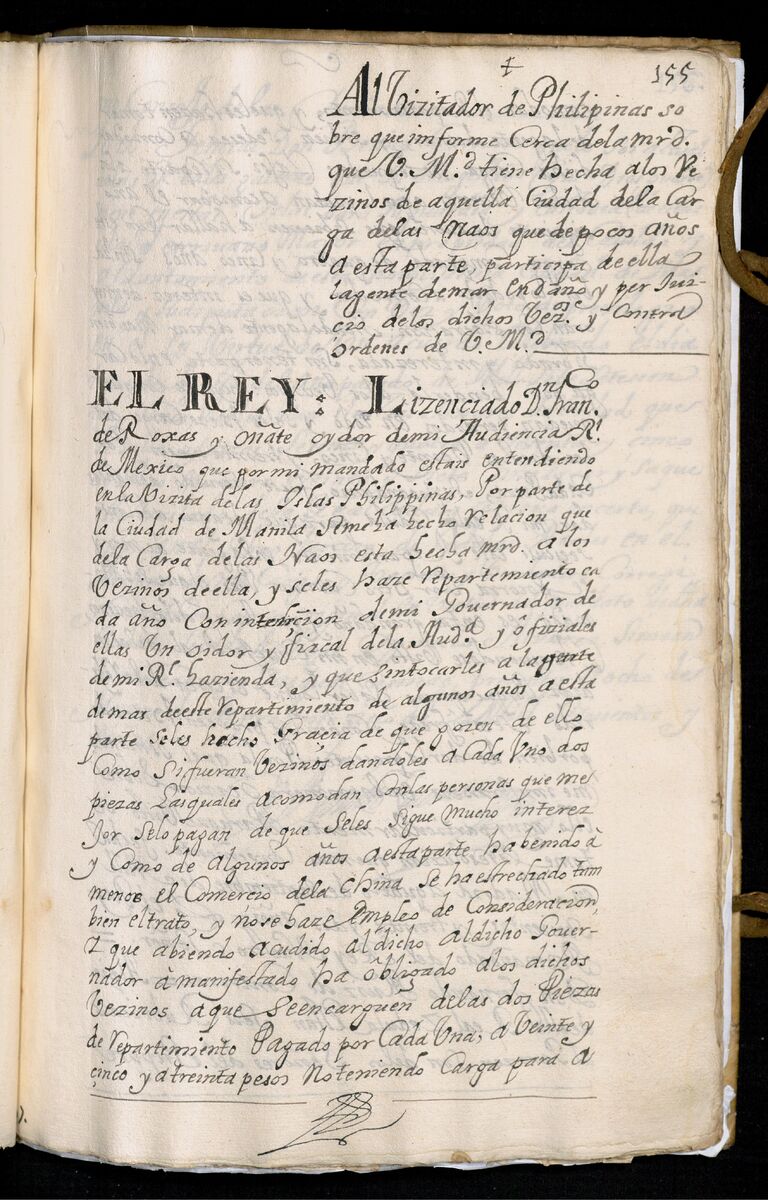 155
Al Vizitador de Philipinas so
bre que informe Cerca dela mrd.
que V. M.d tiene hecha alos Ve
zinos de aquella Ciudad dela Car
ga delas Naos que de pocos años
a esta parte, participa de ella
lagente demar En daño y per Jui-
cio delos dichos Vez.os e y Contra
ordenes de V. M.d
EL REY: Lizenciado D.n Fran.co
de Roxas y oñate oydor demi Audiencia R.l
de Mexico que por mi mandado estais entendiendo
en la Vizita delas Islas Philippinas, Por parte de
la Ciudad de Manila Semeha hecho Relacion que
dela Carga delas Naos esta hecha mrd. a los
Vezinos deella, y seles haze repartimiento ca
da año Con intercion demi Governador de
ellas Un oidor y fizcal dela Aud.a y ofiziales
demi R.l hazienda, y que sintocarles a la parte
demas deeste repartimiento de algunos años a esta
parte Seles hecho Gracia de que gozen de ello
Como Si fueran Vezinos dandoles a Cada Uno dos
piezas Lasquales acomodan Conlas personas que me
jor Selo pagan de que Seles Sigue Mucho interez
y Como de algunos años aesta parte habenido à
menos el Comercio dela China Se ha estrechado tam
bien eltrato, y nose haze Empleo de Consideracion,
I que abiendo acudido al dicho aldicho Gover-
nador à manifestado ha òbligado alos dichos
Vezinos aque Seencarguen delas dos Piezas
de repartimiento Pagado por Cada Una, a Veinte y
çinco y atreinta pesos Noteniendo Carga para a